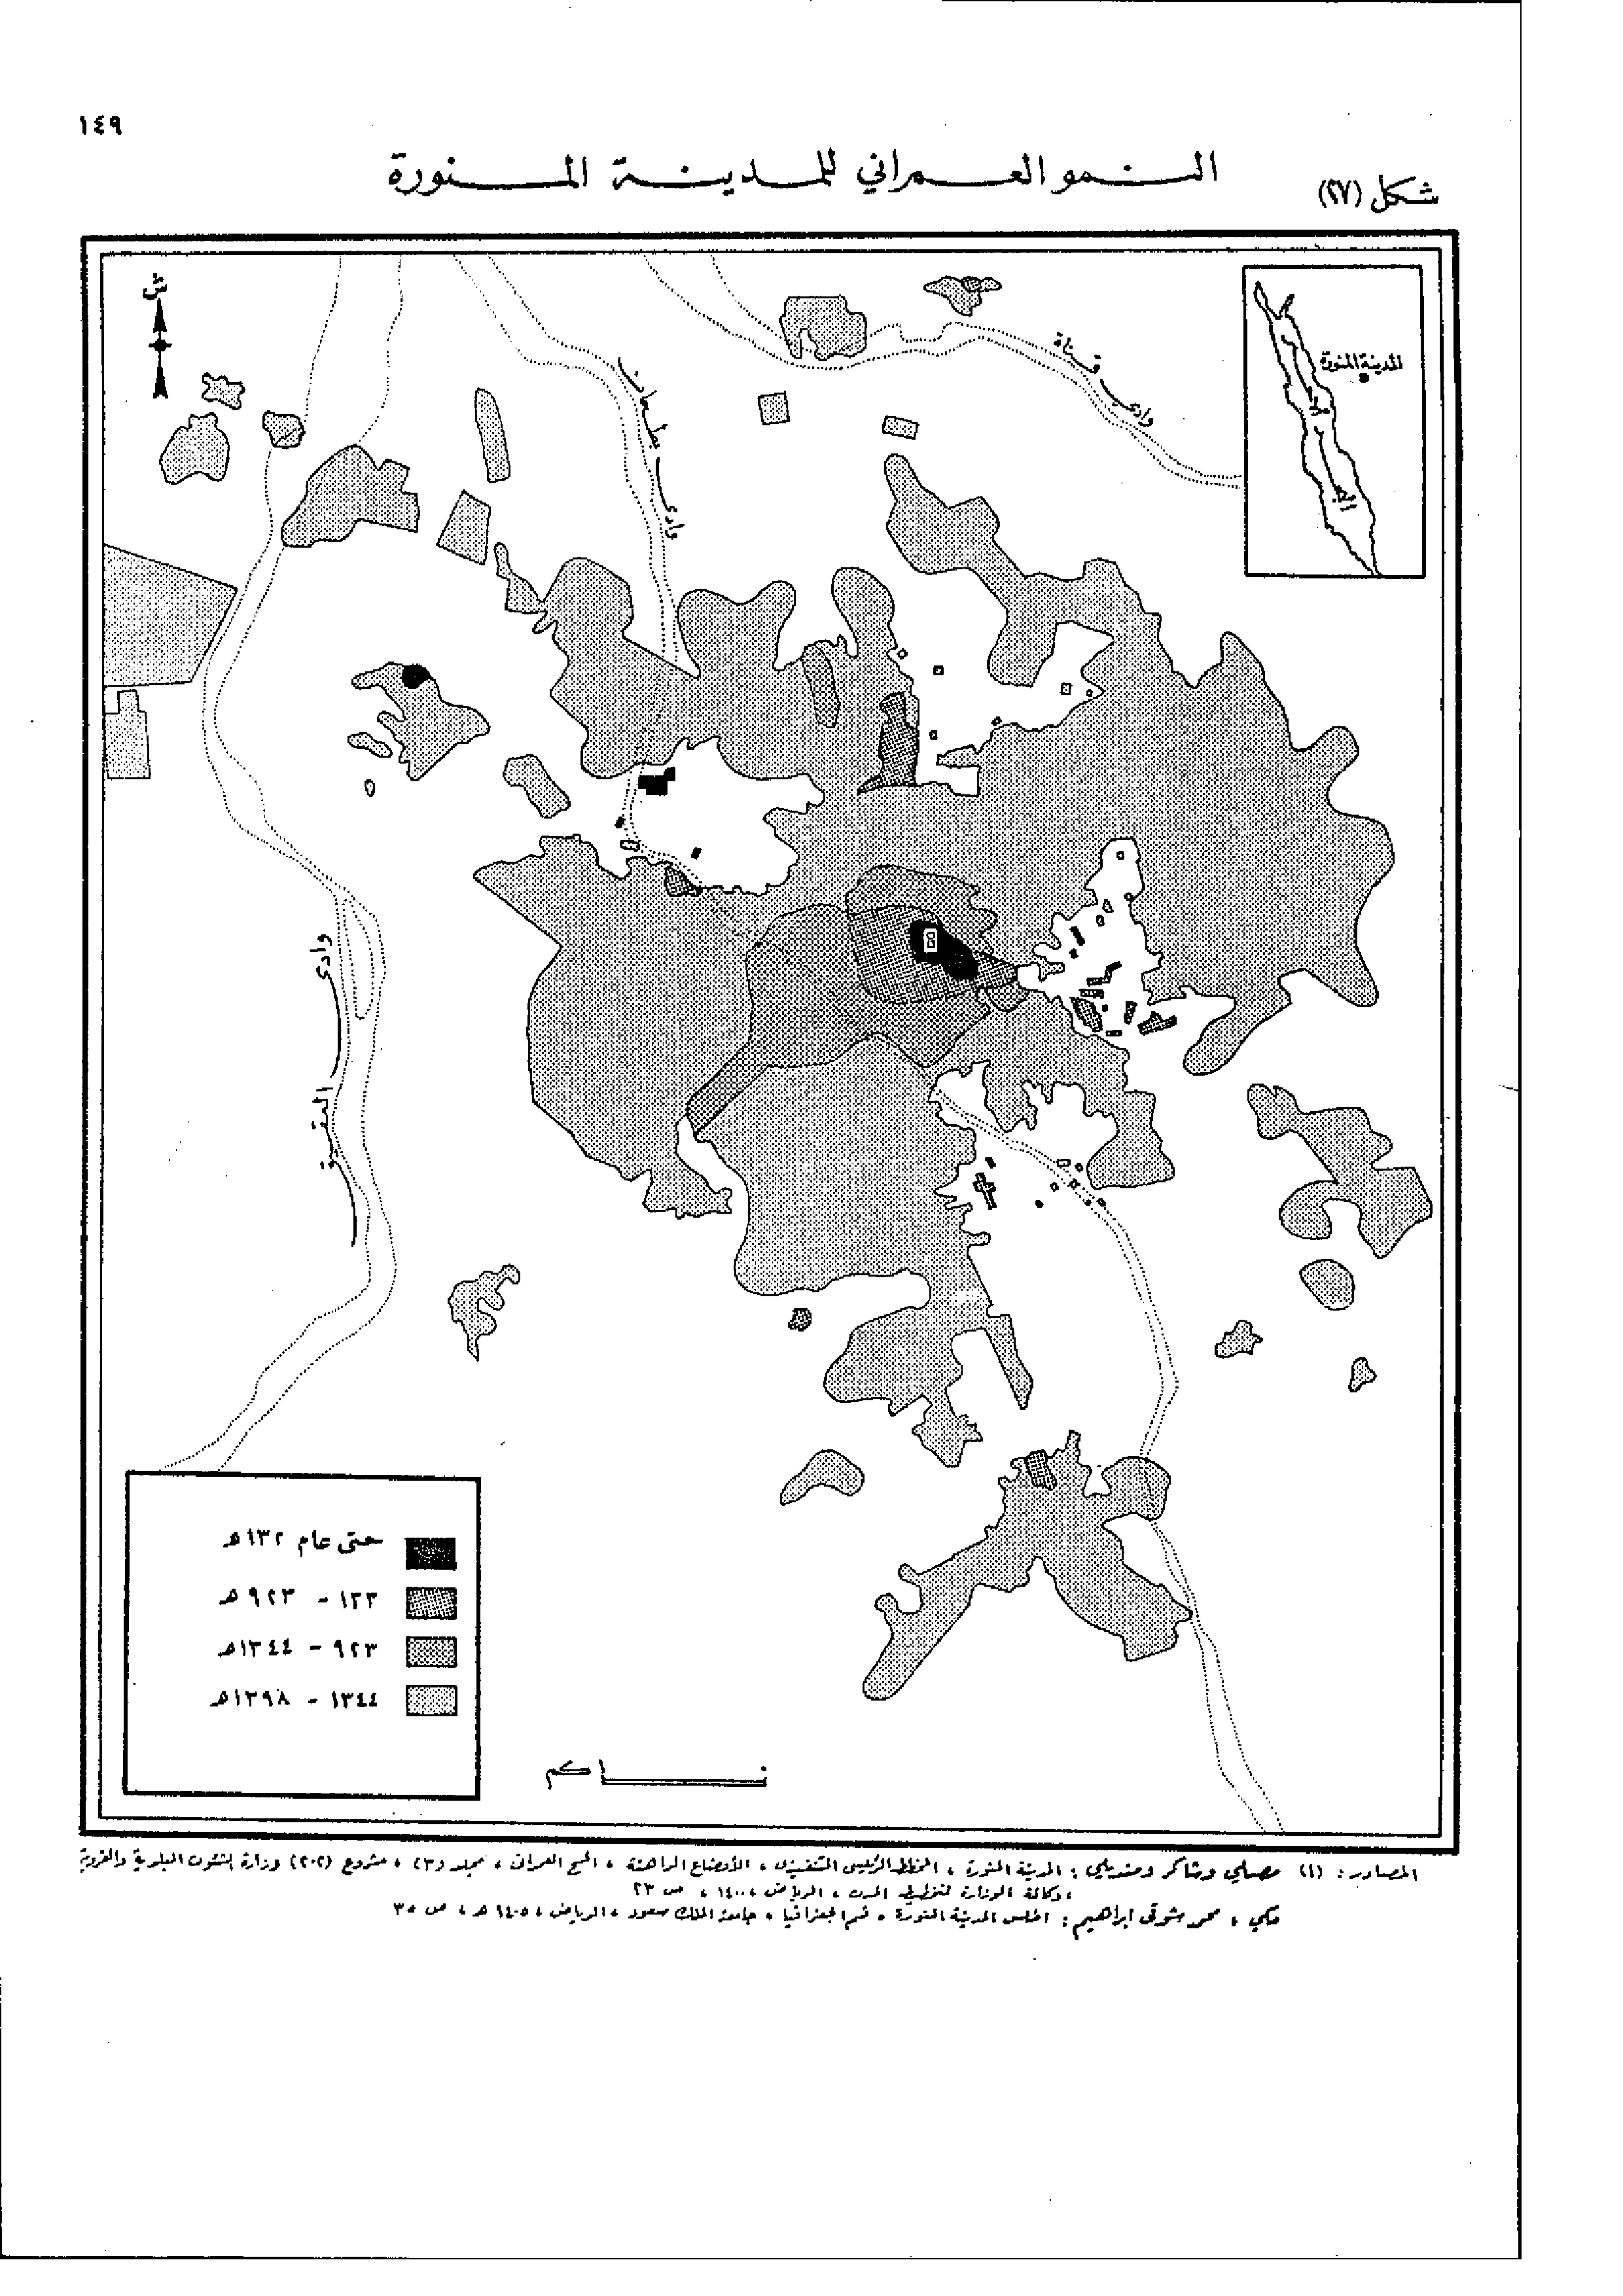 ١٤٩
النمو العمراني للمدينة المنورة
شكل (٢٧)
ش
المدينة المنورة
مكة
وادي قناة
وادي بطحان
وادي العقيق
حتى عام ١٣٢هـ
١٣٣ - ٩٢٣هـ
٩٢٣ - ١٣٤٤هـ
١٣٤٤ - ١٣٩٨هـ
١كم
المصادر : (١) مصلي وشاكر ومنديلي : المدينة المنورة ، المخطط الرئيسي التنفيذي ، الأوضاع الراهنة ، المسح العمراني ، مجلد (٣) ، مشروع (٢٠٢) وزارة الشئون البلدية والقروية
، وكالة الوزارة لتخطيط المدن ، الرياض ، ١٤٠٠ ، ص ٢٣
مكي ، محمد شوقي ابراهيم : اطلس المدينة المنورة ، قسم الجغرافيا ، جامعة الملك سعود ، الرياض ، ١٤٠٥ هـ ، ص ٣٥